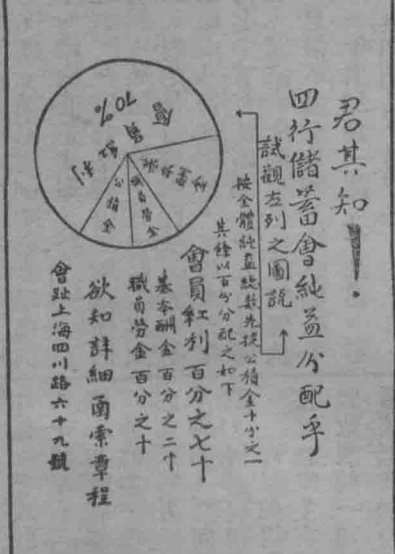 君其知！．
四行儲蓄會純益分配乎
試觀左列之圖說
按全體純益總數先提公積金十分之一
其餘以百分分配之如下
會員紅利百分之七十
基本酬金百分之二十
職員勞金百分之十
欲知詳細函索章程
會址上海四川路六十九號
會員紅利
70%
公積金